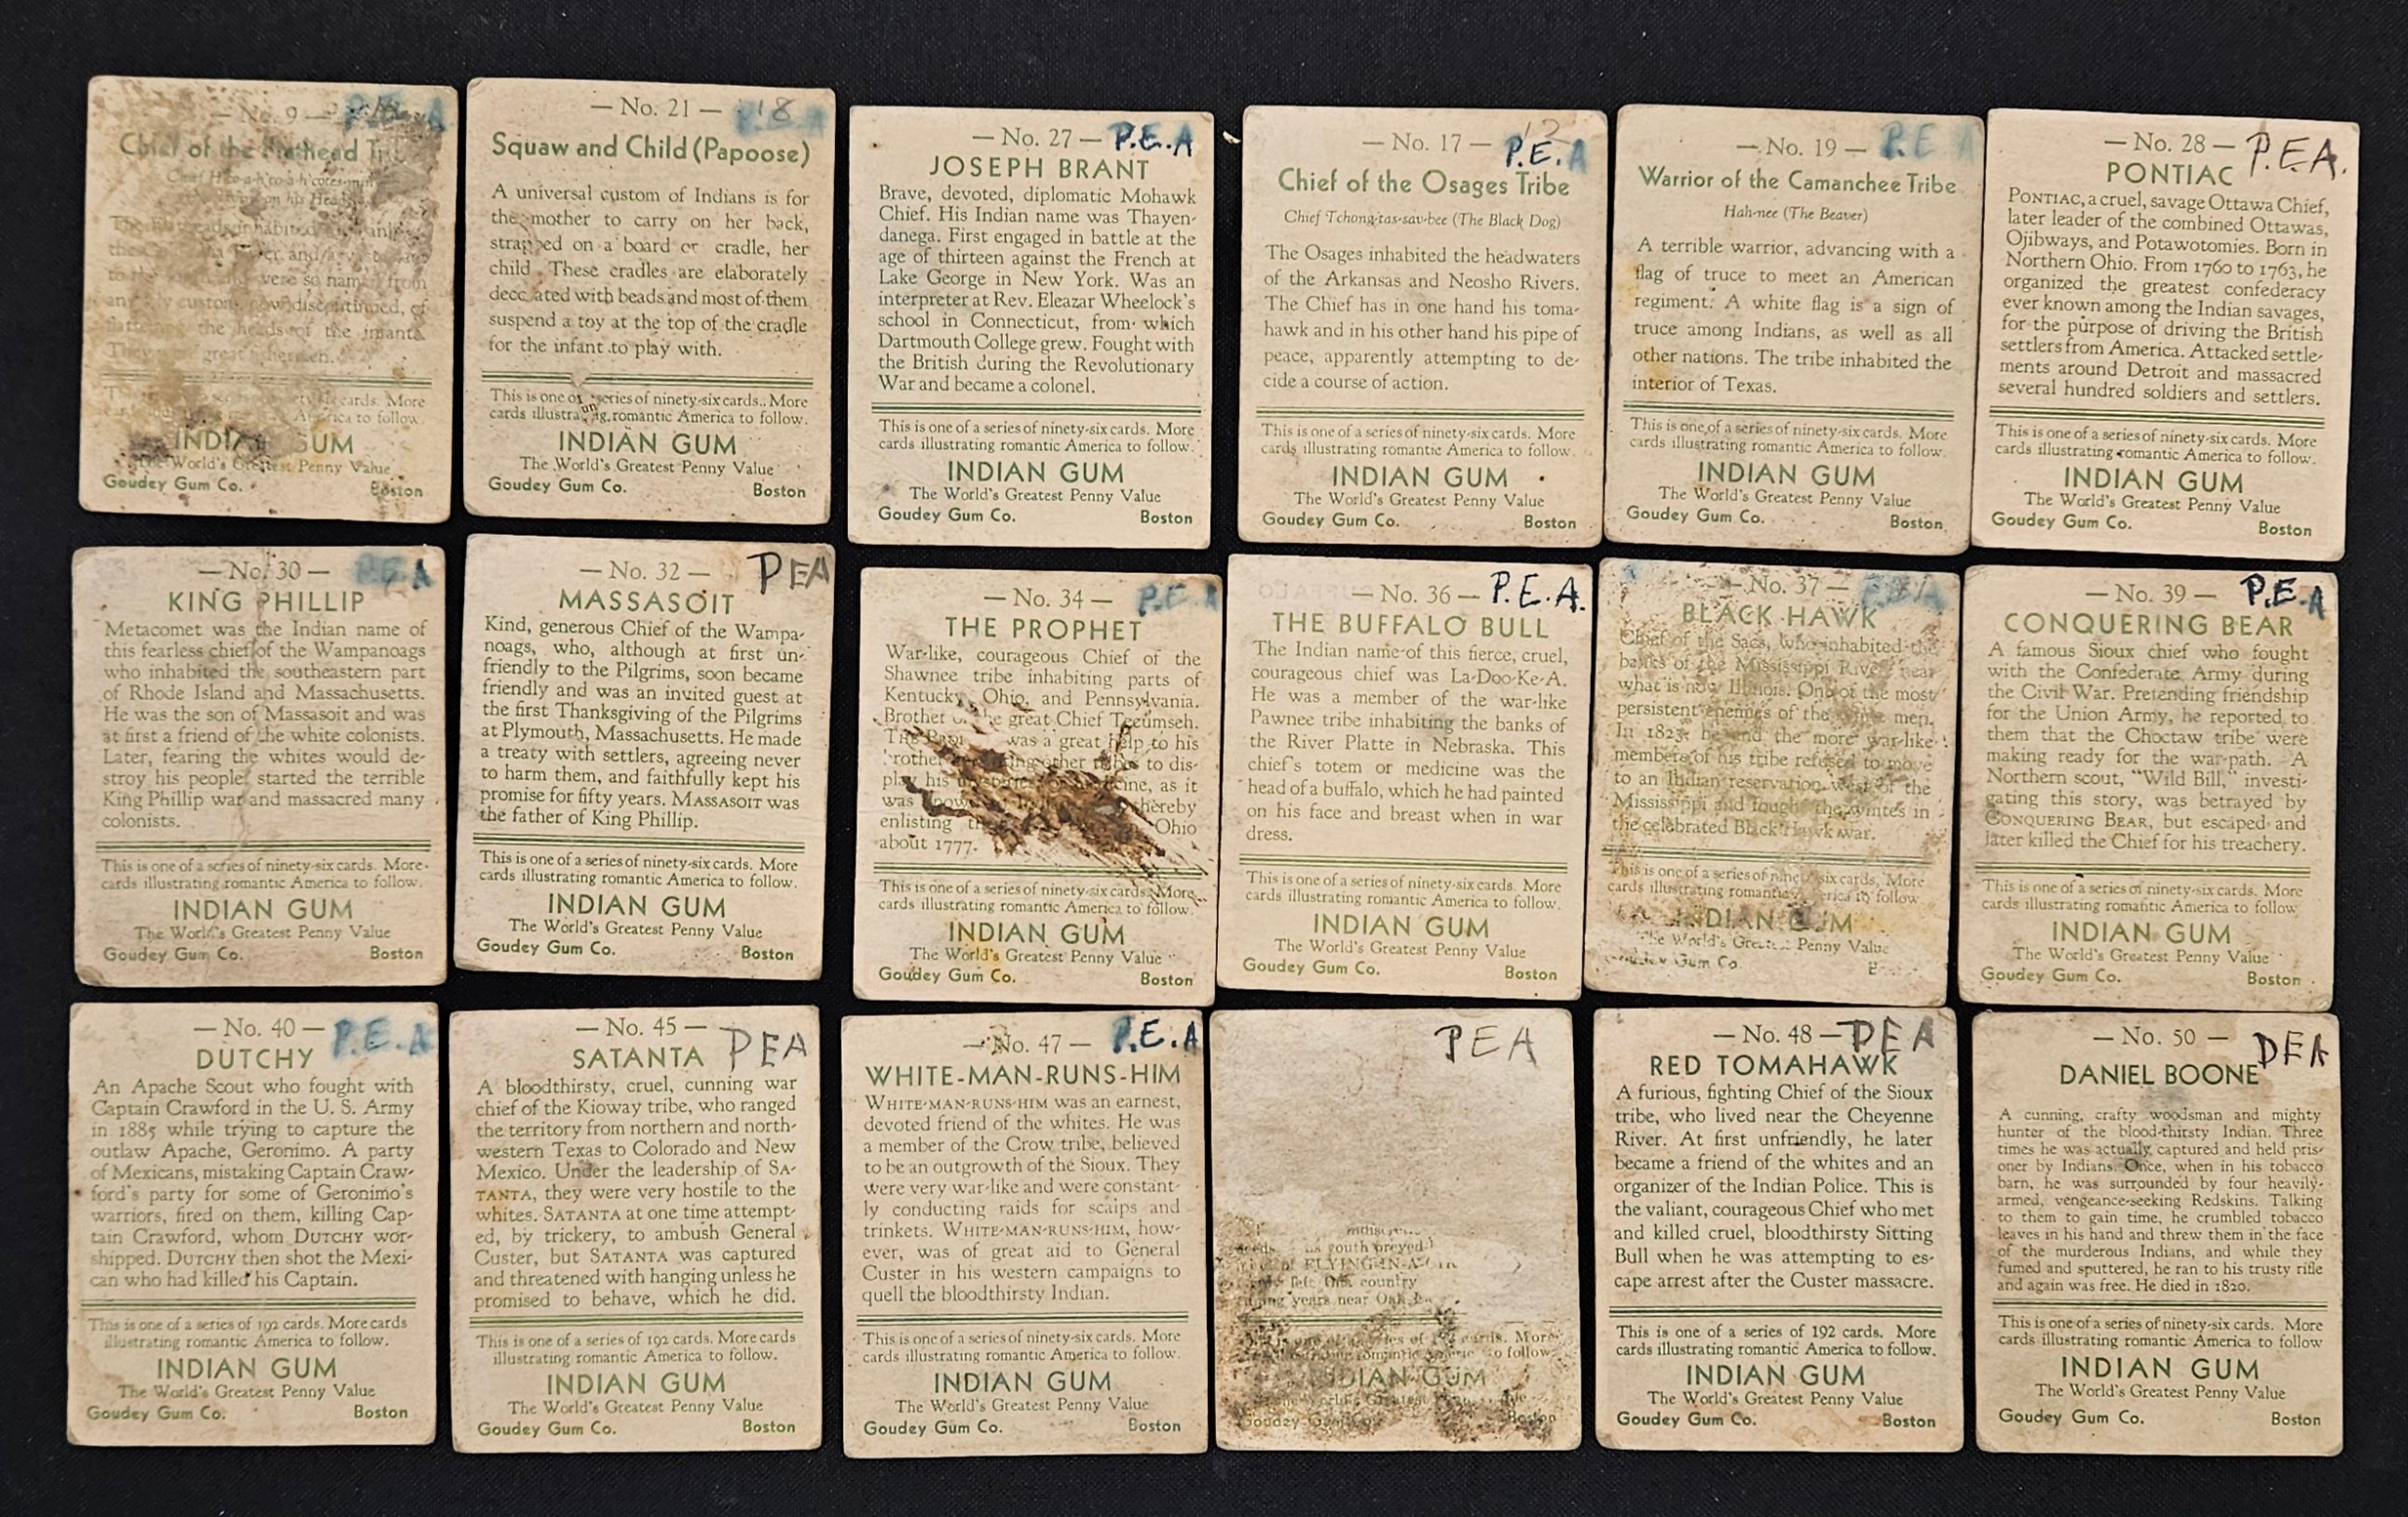 — No. 9 — P.E.A
Chief of the Flathead
on his Head
inhabited
the and
to the were so named from
custom, now discontinued, of
the heads of the infants.
They great fishermen.
cards. More
America to follow
INDIAN GUM
The World's Greatest Penny Value
Goudey Gum Co. Boston
— No. 21 — 18
P.E.A
Squaw and Child (Papoose)
A universal custom of Indians is for
the mother to carry on her back,
strapped on a board or cradle, her
child. These cradles are elaborately
decorated with beads and most of them
suspend a toy at the top of the cradle
for the infant to play with.
This is one of series of ninety-six cards. More
cards illustrating romantic America to follow.
INDIAN GUM
The World's Greatest Penny Value
Goudey Gum Co. Boston
— No. 27 — P.E.A
JOSEPH BRANT
Brave, devoted, diplomatic Mohawk
Chief. His Indian name was Thayen-
danega. First engaged in battle at the
age of thirteen against the French at
Lake George in New York. Was an
interpreter at Rev. Eleazar Wheelock's
school in Connecticut, from which
Dartmouth College grew. Fought with
the British during the Revolutionary
War and became a colonel.
This is one of a series of ninety-six cards. More
cards illustrating romantic America to follow.
INDIAN GUM
The World's Greatest Penny Value
Goudey Gum Co. Boston
— No. 17 — 12
P.E.A
Chief of the Osages Tribe
Chief Tchong-tas-sav-bee (The Black Dog)
The Osages inhabited the headwaters
of the Arkansas and Neosho Rivers.
The Chief has in one hand his toma-
hawk and in his other hand his pipe of
peace, apparently attempting to de-
cide a course of action.
This is one of a series of ninety-six cards. More
cards illustrating romantic America to follow.
INDIAN GUM
The World's Greatest Penny Value
Goudey Gum Co. Boston
— No. 19 — P.E A
Warrior of the Camanchee Tribe
Hah-nee (The Beaver)
A terrible warrior, advancing with a
flag of truce to meet an American
regiment. A white flag is a sign of
truce among Indians, as well as all
other nations. The tribe inhabited the
interior of Texas.
This is one of a series of ninety-six cards. More
cards illustrating romantic America to follow.
INDIAN GUM
The World's Greatest Penny Value
Goudey Gum Co. Boston
— No. 28 — P.E.A.
PONTIAC
PONTIAC, a cruel, savage Ottawa Chief,
later leader of the combined Ottawas,
Ojibways, and Potawotomies. Born in
Northern Ohio. From 1760 to 1763, he
organized the greatest confederacy
ever known among the Indian savages,
for the purpose of driving the British
settlers from America. Attacked settle-
ments around Detroit and massacred
several hundred soldiers and settlers.
This is one of a series of ninety-six cards. More
cards illustrating romantic America to follow.
INDIAN GUM
The World's Greatest Penny Value
Goudey Gum Co. Boston
— No. 30 — P.E.A
KING PHILLIP
Metacomet was the Indian name of
this fearless chief of the Wampanoags
who inhabited the southeastern part
of Rhode Island and Massachusetts.
He was the son of Massasoit and was
at first a friend of the white colonists.
Later, fearing the whites would de-
stroy his people, started the terrible
King Phillip war and massacred many
colonists.
This is one of a series of ninety-six cards. More
cards illustrating romantic America to follow.
INDIAN GUM
The World's Greatest Penny Value
Goudey Gum Co. Boston
— No. 32 — PEA
MASSASOIT
Kind, generous Chief of the Wampa-
noags, who, although at first un-
friendly to the Pilgrims, soon became
friendly and was an invited guest at
the first Thanksgiving of the Pilgrims
at Plymouth, Massachusetts. He made
a treaty with settlers, agreeing never
to harm them, and faithfully kept his
promise for fifty years. MASSASOIT was
the father of King Phillip.
This is one of a series of ninety-six cards. More
cards illustrating romantic America to follow.
INDIAN GUM
The World's Greatest Penny Value
Goudey Gum Co. Boston
— No. 34 — P.E.A
THE PROPHET
War-like, courageous Chief of the
Shawnee tribe inhabiting parts of
Kentucky, Ohio, and Pennsylvania.
Brother of the great Chief Tecumseh.
The was a great help to his
other to dis-
play his as it
was thereby
enlisting Ohio
about 1777.
This is one of a series of ninety-six cards. More
cards illustrating romantic America to follow.
INDIAN GUM
The World's Greatest Penny Value
Goudey Gum Co. Boston
— No. 36 — P.E.A.
THE BUFFALO BULL
The Indian name of this fierce, cruel,
courageous chief was La-Doo-Ke-A.
He was a member of the war-like
Pawnee tribe inhabiting the banks of
the River Platte in Nebraska. This
chief's totem or medicine was the
head of a buffalo, which he had painted
on his face and breast when in war
dress.
This is one of a series of ninety-six cards. More
cards illustrating romantic America to follow.
INDIAN GUM
The World's Greatest Penny Value
Goudey Gum Co. Boston
— No. 37 —
BLACK HAWK
Chief of the Sacs, who inhabited the
banks of the Mississippi River near
what is now Illinois. One of the most
persistent enemies of the white men.
In 1823, he and the more war-like
members of his tribe refused to move
to an Indian reservation west of the
Mississippi and fought the whites in
the celebrated Black Hawk war.
This is one of a series of ninety-six cards. More
cards illustrating romantic America to follow
INDIAN GUM
The World's Greatest Penny Value
Goudey Gum Co.
— No. 39 — P.E.A
CONQUERING BEAR
A famous Sioux chief who fought
with the Confederate Army during
the Civil War. Pretending friendship
for the Union Army, he reported to
them that the Choctaw tribe were
making ready for the war-path. A
Northern scout, "Wild Bill," investi-
gating this story, was betrayed by
CONQUERING BEAR, but escaped and
later killed the Chief for his treachery.
This is one of a series of ninety-six cards. More
cards illustrating romantic America to follow
INDIAN GUM
The World's Greatest Penny Value
Goudey Gum Co. Boston
— No. 40 — P.E.A
DUTCHY
An Apache Scout who fought with
Captain Crawford in the U. S. Army
in 1885 while trying to capture the
outlaw Apache, Geronimo. A party
of Mexicans, mistaking Captain Craw-
ford's party for some of Geronimo's
warriors, fired on them, killing Cap-
tain Crawford, whom DUTCHY wor-
shipped. DUTCHY then shot the Mexi-
can who had killed his Captain.
This is one of a series of 192 cards. More cards
illustrating romantic America to follow.
INDIAN GUM
The World's Greatest Penny Value
Goudey Gum Co. Boston
— No. 45 — PEA
SATANTA
A bloodthirsty, cruel, cunning war
chief of the Kioway tribe, who ranged
the territory from northern and north-
western Texas to Colorado and New
Mexico. Under the leadership of SA-
TANTA, they were very hostile to the
whites. SATANTA at one time attempt-
ed, by trickery, to ambush General
Custer, but SATANTA was captured
and threatened with hanging unless he
promised to behave, which he did.
This is one of a series of 192 cards. More cards
illustrating romantic America to follow.
INDIAN GUM
The World's Greatest Penny Value
Goudey Gum Co. Boston
— No. 47 — P.E.A
WHITE-MAN-RUNS-HIM
WHITE-MAN-RUNS-HIM was an earnest,
devoted friend of the whites. He was
a member of the Crow tribe, believed
to be an outgrowth of the Sioux. They
were very war-like and were constant-
ly conducting raids for scalps and
trinkets. WHITE-MAN-RUNS-HIM, how-
ever, was of great aid to General
Custer in his western campaigns to
quell the bloodthirsty Indian.
This is one of a series of ninety-six cards. More
cards illustrating romantic America to follow.
INDIAN GUM
The World's Greatest Penny Value
Goudey Gum Co. Boston
PEA
youth preyed
country
years near
of cards. More
to follow.
INDIAN GUM
Goudey Gum Co. Boston
— No. 48 — PEA
RED TOMAHAWK
A furious, fighting Chief of the Sioux
tribe, who lived near the Cheyenne
River. At first unfriendly, he later
became a friend of the whites and an
organizer of the Indian Police. This is
the valiant, courageous Chief who met
and killed cruel, bloodthirsty Sitting
Bull when he was attempting to es-
cape arrest after the Custer massacre.
This is one of a series of 192 cards. More
cards illustrating romantic America to follow.
INDIAN GUM
The World's Greatest Penny Value
Goudey Gum Co. Boston
— No. 50 — PEA
DANIEL BOONE
A cunning, crafty woodsman and mighty
hunter of the blood-thirsty Indian. Three
times he was actually captured and held pris-
oner by Indians. Once, when in his tobacco
barn, he was surrounded by four heavily-
armed, vengeance-seeking Redskins. Talking
to them to gain time, he crumbled tobacco
leaves in his hand and threw them in the face
of the murderous Indians, and while they
fumed and sputtered, he ran to his trusty rifle
and again was free. He died in 1820.
This is one of a series of ninety-six cards. More
cards illustrating romantic America to follow
INDIAN GUM
The World's Greatest Penny Value
Goudey Gum Co. Boston